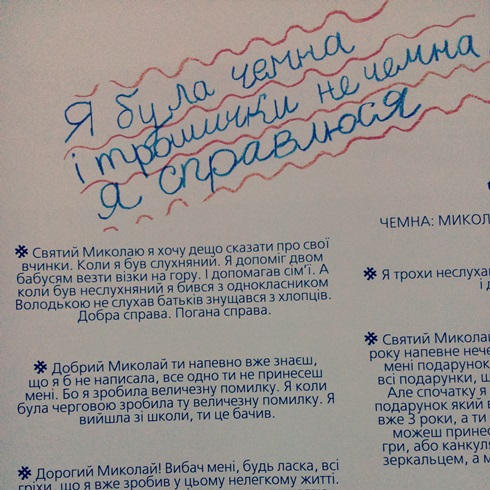 Я була чемна
і трошички не чемна
я справлюся
ЧЕМНА: МИКОЛ
Святий Миколаю я хочу дещо сказати про свої
вчинки. Коли я був слухняний. Я допоміг двом
бабусям везти візки на гору. І допомагав сім’ї. А
коли був неслухняний я бився з однокласником
Володькою не слухав батьків знущався з хлопців.
Добра справа. Погана справа.
Добрий Миколай ти напевно вже знаєш,
що я б не написала, все одно ти не принесеш
мені. Бо я зробила величезну помилку. Я коли
була черговою зробила ту величезну помилку. Я
вийшла зі школи, ти це бачив.
Дорогий Миколай! Вибач мені, будь ласка, всі
гріхи, що я вже зробив у цьому нелегкому житті.
Я трохи неслухан
і д
Святий Миколай
року напевне нече
мені подарунок
всі подарунки, щ
Але спочатку я
подарунок який в
вже 3 роки, а ти
можеш принес
гри, або канкуля
зеркальцем, а м